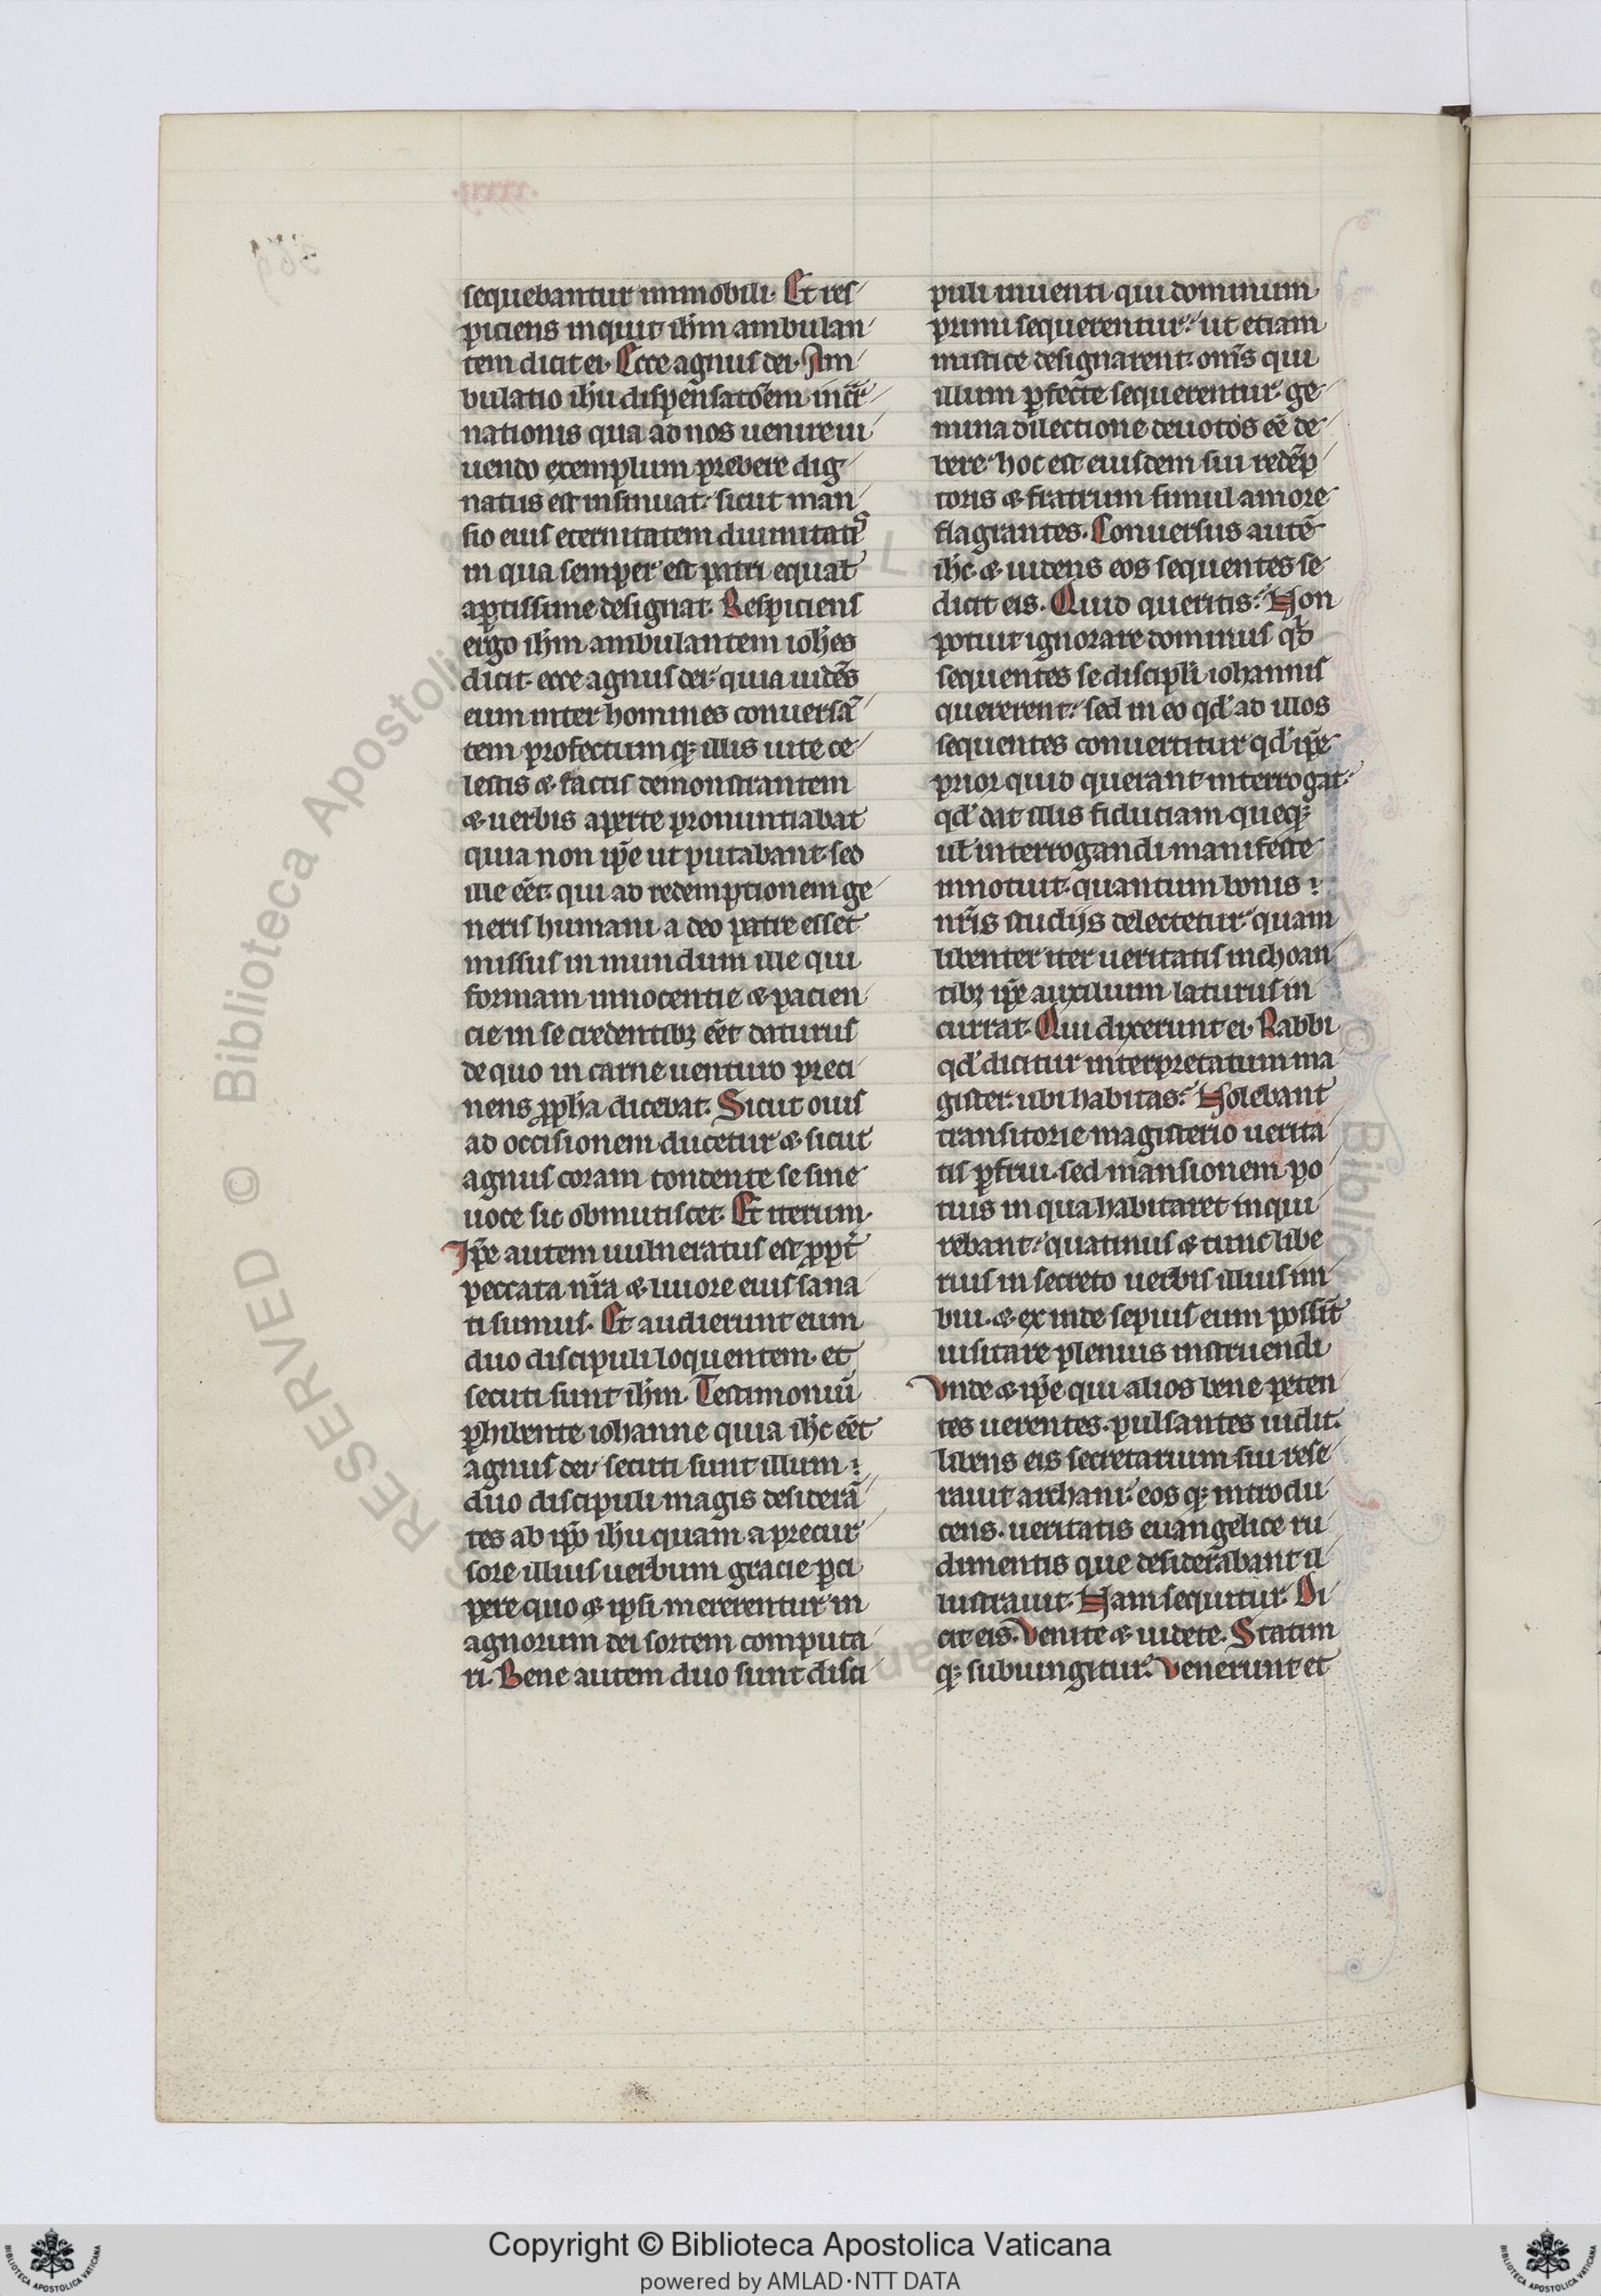 sequebantur inmobili. Et res
piciens inquit ih̄m ambulan
tem dicit ei. Ecce agnus dei. Am
bulatio ih̄u dispensatōem incar
nationis qua ad nos uenire ui
uendo exemplum prebere dig
natus est insinuat. sicut man
sio eius eternitatem diuinitatis
in qua semper est patri equal̄
aptissime designat. Respiciens
ergo ih̄m ambulantem ioh̄es
dicit. ecce agnus dei. quia uidēs
eum inter homines conuersā
tem profectumq; illis uite ce
lestis & factis demonstrantem
& uerbis aperte pronuntiabat
quia non ip̄e ut putabant. sed
ille eēt. qui ad redemptionem ge
neris humani a deo patre esset
missus in mundum ille qui
formam innocentie & pacien
cie in se credentibꝫ eēt daturus
de quo in carne uenturo preci
nens ꝓph̄a dicebat. Sicut ouis
ad occisionem ducetur & sicut
agnus coram tondente se sine
uoce sic obmutiscet. Et iterum.
Ip̄e autem uulneratus est ꝓpt̄
peccata nr̄a & liuore eius sana
ti sumus. Et audierunt eum
duo discipuli loquentem. et
secuti sunt ih̄m. Testimoniū
ꝑhibente iohanne quia ih̄c eēt
agnus dei. secuti sunt illum
duo discipuli magis desiderā
tes ab ip̄o ih̄u quam a precur
sore illius uerbum gracie ꝑci
pere quo & ipsi mererentur in
agnorum dei sortem computa
ri. Bene autem duo sunt disci
puli inuenti qui dominum
primi sequerentur. ut etiam
mistice designarent. om̄s qui
illum ꝑfecte sequerentur ge
mina dilectione deuotos eē de
bere. hoc est eiusdem sui redēp
toris & fratrum simul amore
flagrantes. Conuersus autē
ih̄c. & uidens eos sequentes se
dicit eis. Quid queritis. Non
potuit ignorare dominus qd̄
sequentes se discipli iohannis
quererent. sed in eo qd̄ ad illos
sequentes conuertitur qd̄ ip̄e
prior quid querant interrogat.
qd̄ dat illis fiduciam queq;
ul̄ interrogandi manifeste
innotuit. quantum bonis
nr̄is studijs delectetur. quam
libenter iter ueritatis inchoan
tibꝫ ip̄e auxilium laturus in
currat. Qui dixerunt ei. Rabbi
qd̄ dicitur interpretatum ma
gister. ubi habitas. Nolebant
transitorie magisterio uerita
tis ꝑfrui. sed mansionem po
tius in qua habitaret inqui
rebant. quatinus & tunc libe
rius in secreto uerbis illius im
bui. & ex inde sepius eum possīt
uisitare plenius instruendi
Vnde & ip̄e qui alios bene peten
tes uerentes. pulsantes uidit.
libens eis secretarium sui rese
rauit archani. eos q; introdu
cens. ueritatis euangelice ru
dimentis que desiderabant il
lustrauit. Nam sequitur. Di
cit eis. Venite & uidete. Statim
q; subiungitur. Venerunt et
RESERVED © Biblioteca Apostolica
Copyright © Biblioteca Apostolica Vaticana
powered by AMLAD·NTT DATA